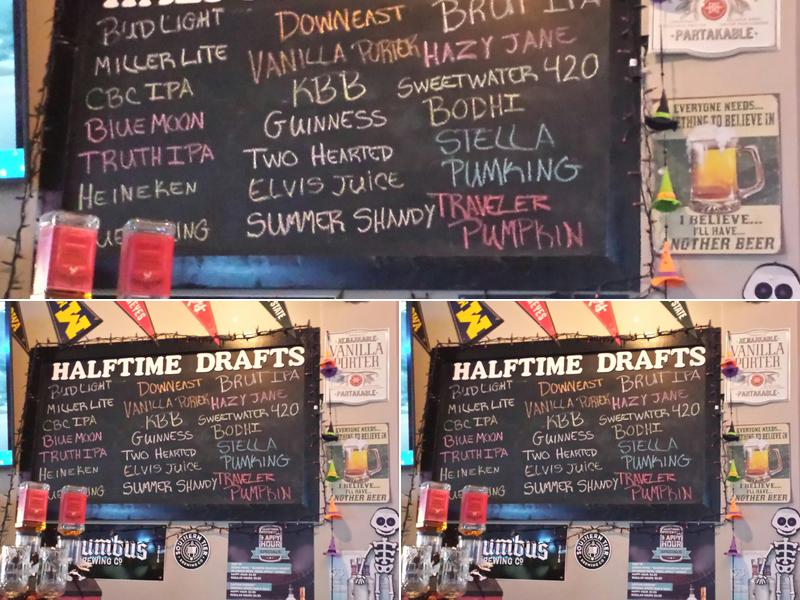 BUD LIGHT
MILLER LITE
CBC IPA
BLUE MOON
TRUTH IPA
HEINEKEN
DOWNEAST
VANILLA PORTER
KBB
GUINNESS
TWO HEARTED
ELVIS JUICE
SUMMER SHANDY
BRUT IPA
HAZY JANE
SWEETWATER 420
BODHI
STELLA
PUMKING
TRAVELER
PUMPKIN
·PARTAKABLE·
EVERYONE NEEDS...
THING TO BELIEVE IN
I BELIEVE...
I'LL HAVE...
ANOTHER BEER
HALFTIME DRAFTS
BUD LIGHT
MILLER LITE
CBC IPA
BLUE MOON
TRUTH IPA
HEINEKEN
DOWNEAST
VANILLA PORTER
KBB
GUINNESS
TWO HEARTED
ELVIS JUICE
SUMMER SHANDY
BRUT IPA
HAZY JANE
SWEETWATER 420
BODHI
STELLA
PUMKING
TRAVELER
PUMPKIN
REMARKABLE·
VANILLA
PORTER
·PARTAKABLE·
EVERYONE NEEDS...
THING TO BELIEVE IN
I BELIEVE...
I'LL HAVE...
ANOTHER BEER
umbus
BREWING CO
SOUTHERN TIER
BREWING CO
HAPPY
HOUR
SPECIALS
HALFTIME DRAFTS
BUD LIGHT
MILLER LITE
CBC IPA
BLUE MOON
TRUTH IPA
HEINEKEN
DOWNEAST
VANILLA PORTER
KBB
GUINNESS
TWO HEARTED
ELVIS JUICE
SUMMER SHANDY
BRUT IPA
HAZY JANE
SWEETWATER 420
BODHI
STELLA
PUMKING
TRAVELER
PUMPKIN
REMARKABLE·
VANILLA
PORTER
·PARTAKABLE·
EVERYONE NEEDS...
THING TO BELIEVE IN
I BELIEVE...
I'LL HAVE...
ANOTHER BEER
umbus
BREWING CO
SOUTHERN TIER
BREWING CO
HAPPY
HOUR
SPECIALS